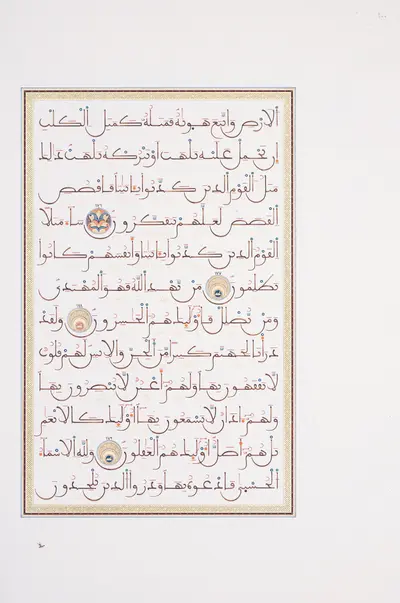 الارض واتبع هويه فمثله كمثل الكلب
ان تحمل عليه يلهث او تتركه يلهث ذلك
مثل القوم الذين كذبوا بـايـتنا فاقصص
القصص لعلهم يتفكرون ساء مثلا
القوم الذين كذبوا بـايـتنا وانفسهم كانوا
يظلمون من يهد الله فهو المهتدى
ومن يضلل فاولـئك هم الخـسرون ولقد
ذرانا لجهنم كثيرا من الجن والانس لهم قلوب
لا يفقهون بها ولهم اعين لا يبصرون بها
ولهم ءاذان لا يسمعون بها اولـئك كالانعـم
بل هم اضل اولـئك هم الغـفلون ولله الاسماء
الحسنى فادعوه بها وذروا الذين يلحدون